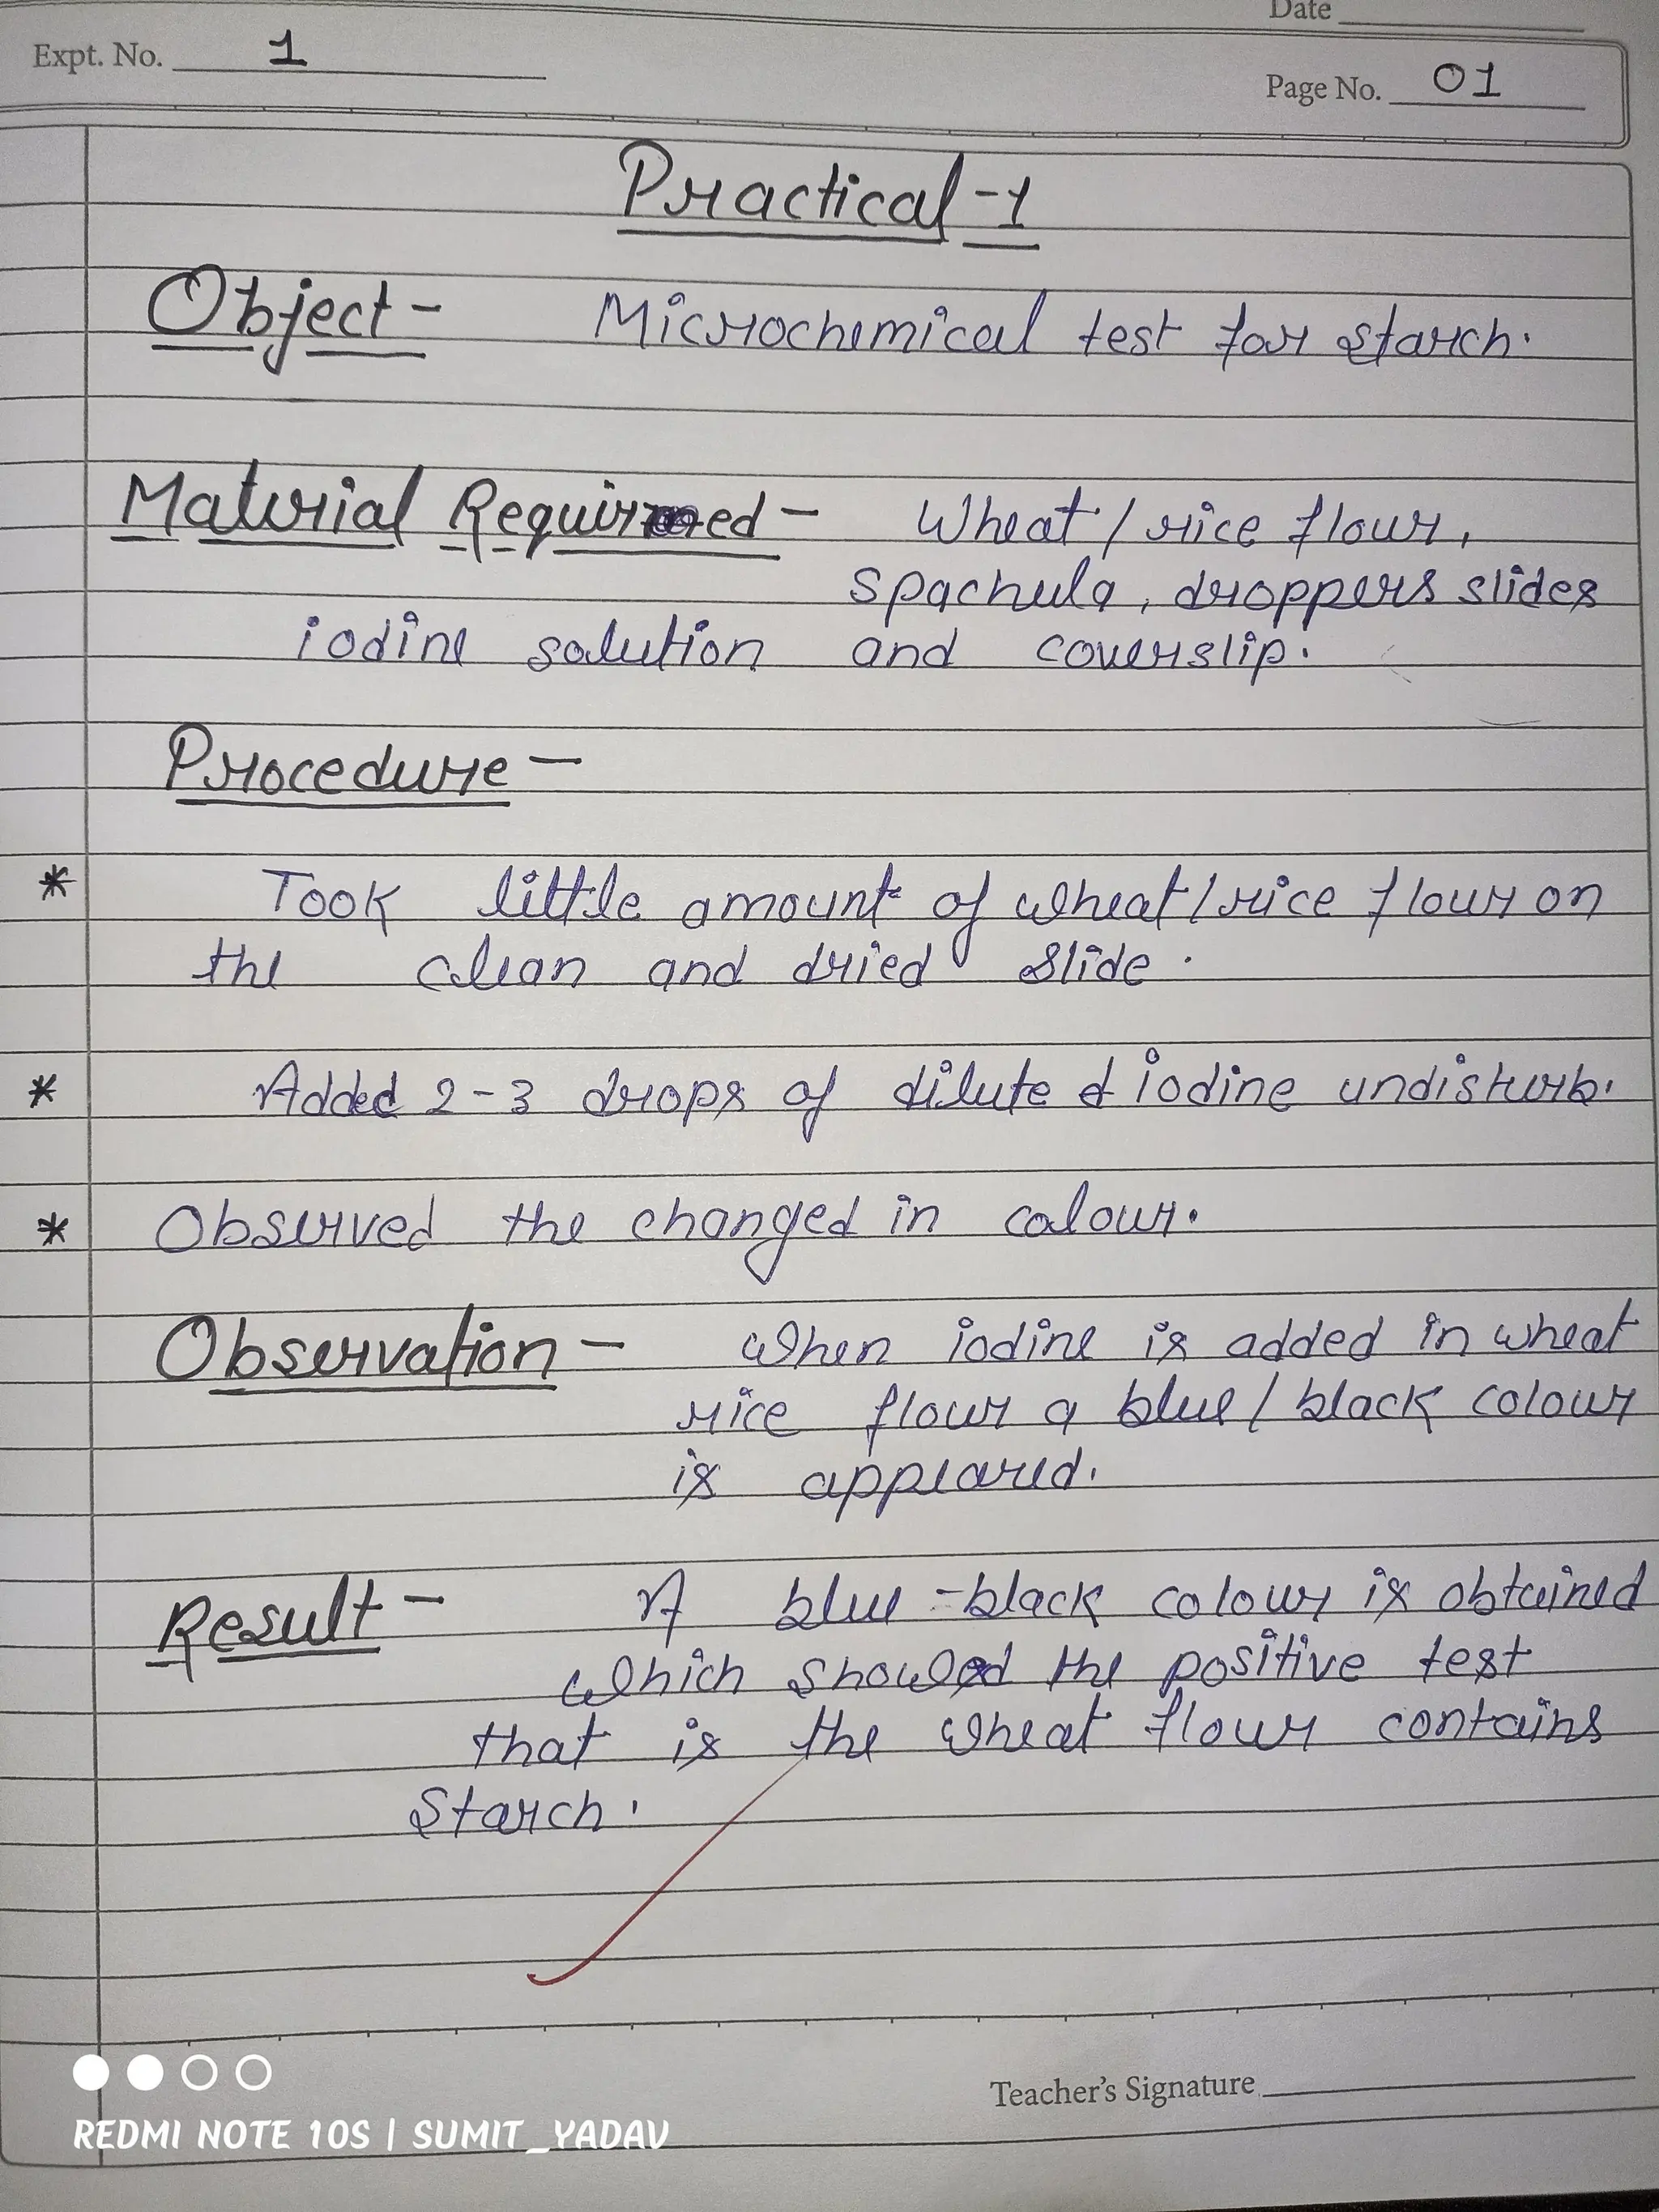 Date
Expt. No. 1
Page No. 01
Practical-1
Object- Microchemical test for starch.
Material Required- Wheat/rice flour,
spachula, droppers slides
iodine solution and coverslip.
Procedure-
* Took little amount of wheat/rice flour on
the clean and dried slide.
* Added 2-3 drops of dilute d iodine undisturb.
* Observed the changed in colour.
Observation- When iodine is added in wheat
rice flour a blue/black colour
is appeared.
Result- A blue-black colour is obtained
which showed the positive test
that is the wheat flour contains
starch.
Teacher's Signature
REDMI NOTE 10S | SUMIT_YADAV